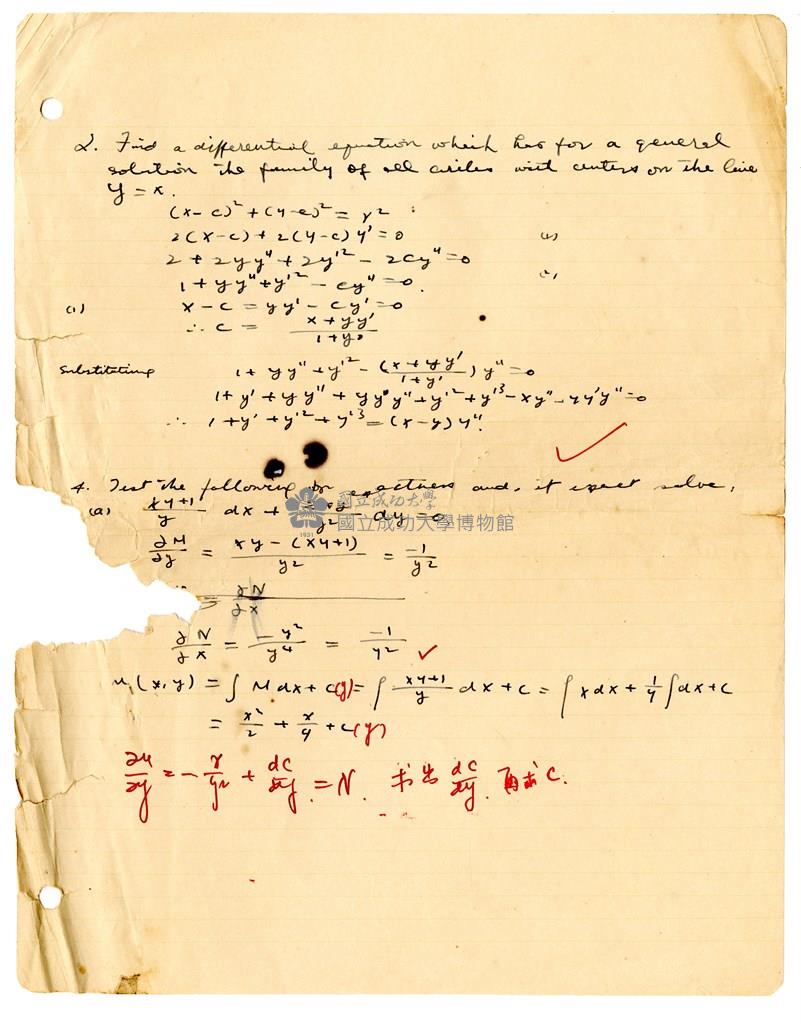 2. Find a differential equation which has for a general
solution the family of all circles with centers on the line
y = x.
(x-c)² + (y-c)² = r²
2(x-c) + 2(y-c)y' = 0
2 + 2yy" + 2y'² - 2cy" = 0
1 + yy" + y'² - cy" = 0.
(1) x - c = yy' - cy' = 0
∴ c = (x + yy')/(1 + y')
Substituting 1 + yy" + y'² - ((x + yy')/(1 + y')) y" = 0
1 + y' + yy" + yy'y" + y'² + y'³ - xy" - yy'y" = 0
∴ 1 + y' + y'² + y'³ = (x-y)y".
✓
4. Test the following for exactness and, if exact solve,
(a) (xy+1)/y dx + dy = 0
國立成功大學
國立成功大學博物館
1931
∂M/∂y = (xy - (xy+1))/y² = -1/y²
= ∂N/∂x
∂N/∂x = -y²/y⁴ = -1/y² ✓
u(x,y) = ∫ M dx + c(y) = ∫ (xy+1)/y dx + c = ∫ x dx + 1/y ∫ dx + c
= x²/2 + x/y + c(y)
∂u/∂y = - x/y² + dc/dy = N. 求出 dc/dy. 再求 C.